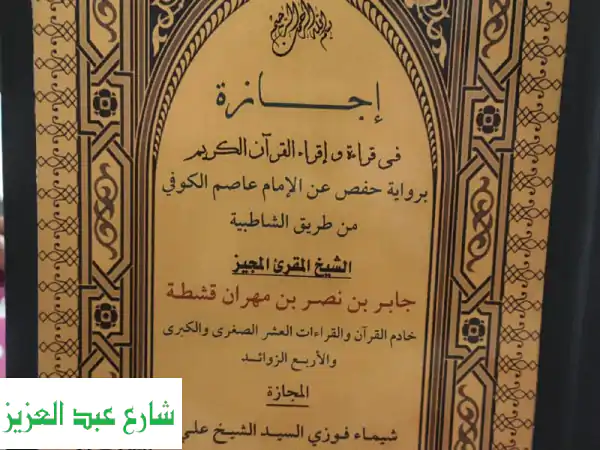 بسم الله الرحمن الرحيم
إجازة
فى قراءة وإقراء القرآن الكريم
برواية حفص عن الإمام عاصم الكوفي
من طريق الشاطبية
الشيخ المقرئ المجيز
جابر بن نصر بن مهران قشطة
خادم القرآن والقراءات العشر الصغرى والكبرى
والأربع الزوائد
المجازة
شيماء فوزي السيد الشيخ علي
شارع عبد العزيز